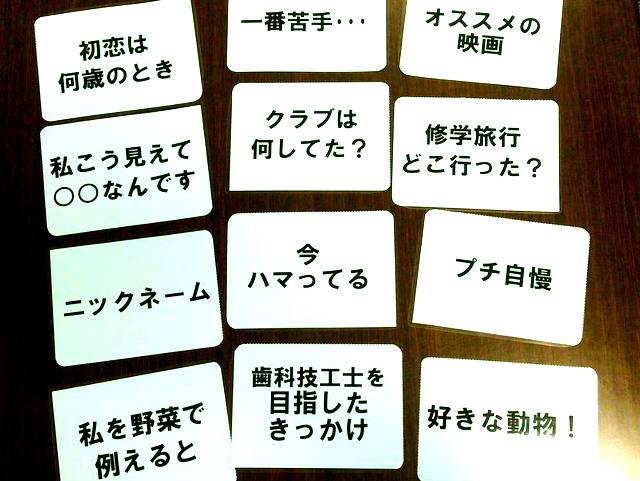 初恋は
何歳のとき
一番苦手･･･
オススメの
映画
私こう見えて
○○なんです
クラブは
何してた？
修学旅行
どこ行った？
ニックネーム
今
ハマってる
プチ自慢
私を野菜で
例えると
歯科技工士を
目指した
きっかけ
好きな動物！